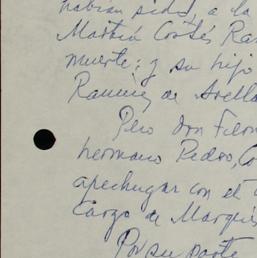 habían sido, a la
Martín Cortés Ra
muerte; y su hijo
Ramírez de Arella
Pero don
hermano Pedro, Co
apechugar con el
Cargo de Marqués
Por su parte